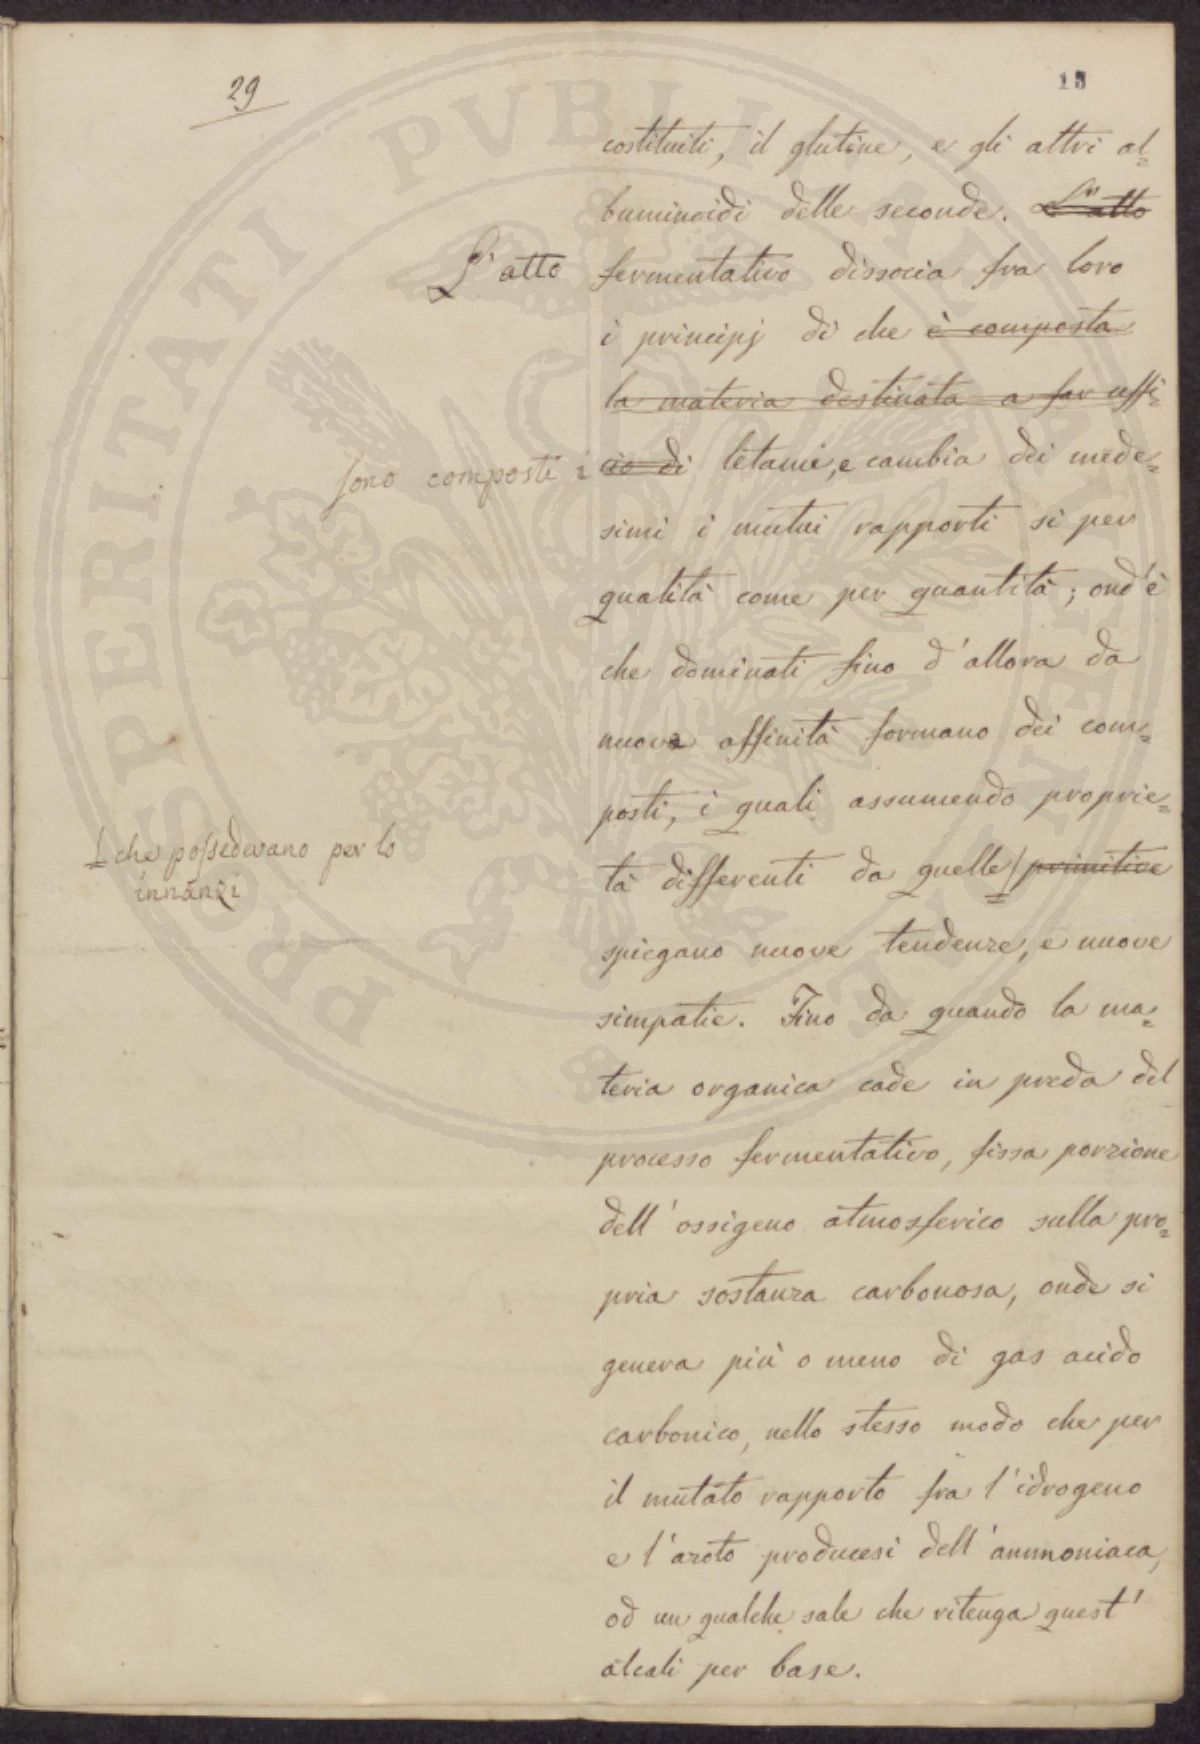 29
15
costituiti, il glutine, e gli altri al=
buminoidi delle seconde. L'atto
L'atto fermentativo dissocia fra loro
i principj di che è composta
la materia destinata a far uffi=
sono composti i cio di letami, e cambia dei mede=
simi i mutui rapporti si per
qualità come per quantità; ond'è
che dominati fino d'allora da
nuove affinità formano dei com=
posti, i quali assumendo proprie=
tà differenti da quelle primitive
che possedevano per lo
innanzi
spiegano nuove tendenze, e nuove
simpatie. Fino da quando la ma=
teria organica cade in preda del
processo fermentativo, fissa porzione
dell'ossigeno atmosferico sulla pro=
pria sostanza carbonosa, onde si
genera più o meno di gas acido
carbonico, nello stesso modo che per
il mutato rapporto fra l'idrogeno
e l'azoto producesi dell'ammoniaca,
od un qualche sale che ritenga quest'
alcali per base.
PROSPERITATI PVBLICAE